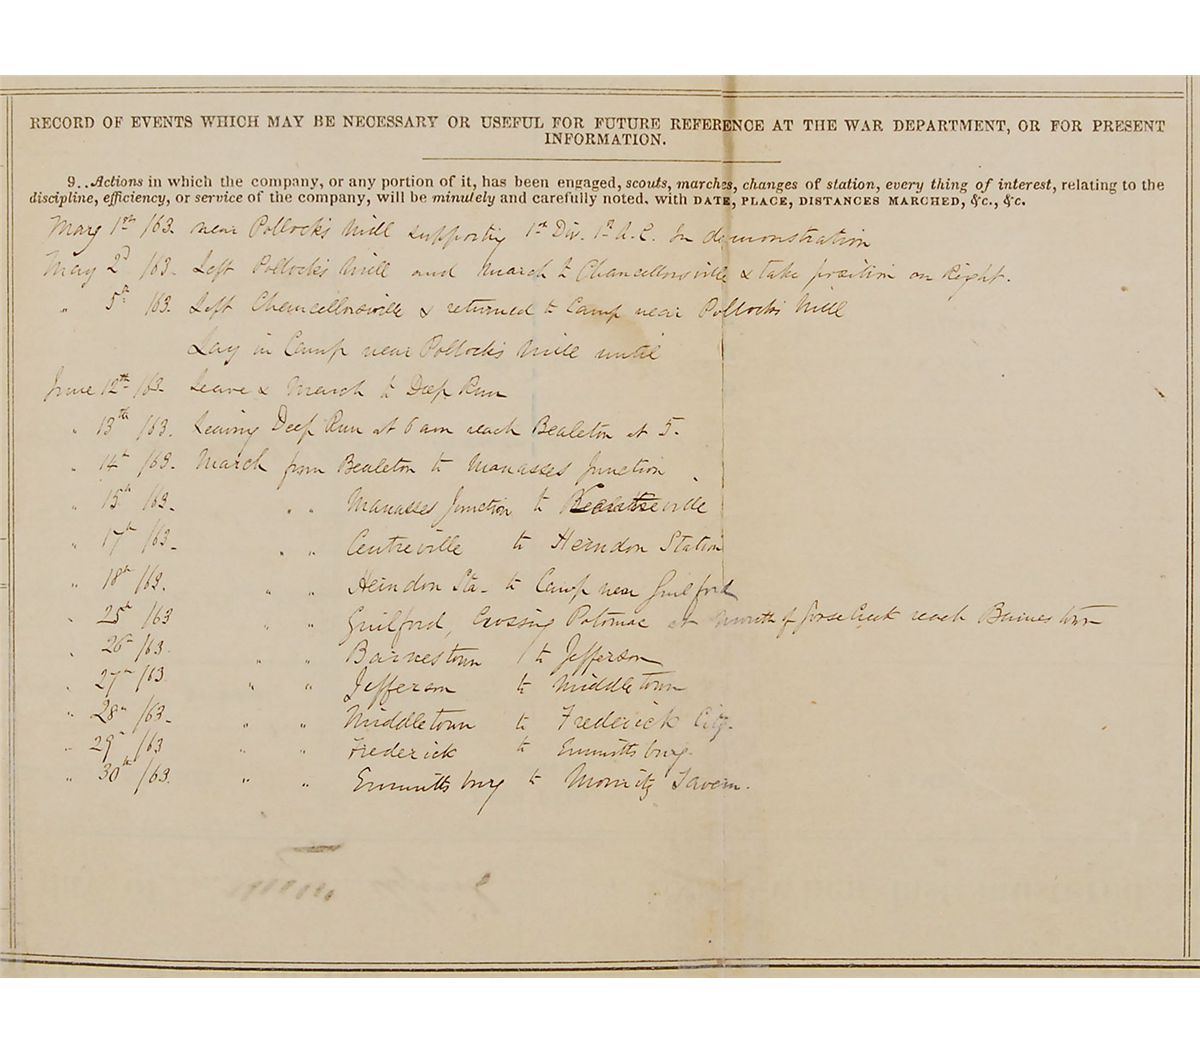 RECORD OF EVENTS WHICH MAY BE NECESSARY OR USEFUL FOR FUTURE REFERENCE AT THE WAR DEPARTMENT, OR FOR PRESENT
INFORMATION.
9.. Actions in which the company, or any portion of it, has been engaged, scouts, marches, changes of station, every thing of interest, relating to the
discipline, efficiency, or service of the company, will be minutely and carefully noted, with DATE, PLACE, DISTANCES MARCHED, &c., &c.
May 1st /63. near Pollocks Mill supporting 1st Div. 1st A.C. in demonstration
May 2d /63. Left Pollocks Mill and March to Chancellorsville & take position on Right.
" 5th /63. Left Chancellorsville & returned to Camp near Pollocks Mill
Lay in Camp near Pollocks Mill until
June 12th /63. Leave & March to Deep Run
" 13th /63. Leaving Deep Run at 6 am reach Bealeton at 5.
" 14th /63. March from Bealeton to Manasses Junction
" 15th /63. " " Manasses Junction to
" 17th /63. " " Centreville to Herndon Station
" 18th /63. " " Herndon Sta. to Camp near Guilford
" 25th /63 " " Guilford, Crossing Potomac at mouth of Goose Creek reach Barnestown
" 26th /63. " " Barnestown to Jefferson
" 27th /63. " " Jefferson to Middletown
" 28th /63. " " Middletown to Frederick City.
" 29th /63 " " Frederick to Emmittsburg.
" 30th /63. " " Emmittsburg to Moritz Tavern.